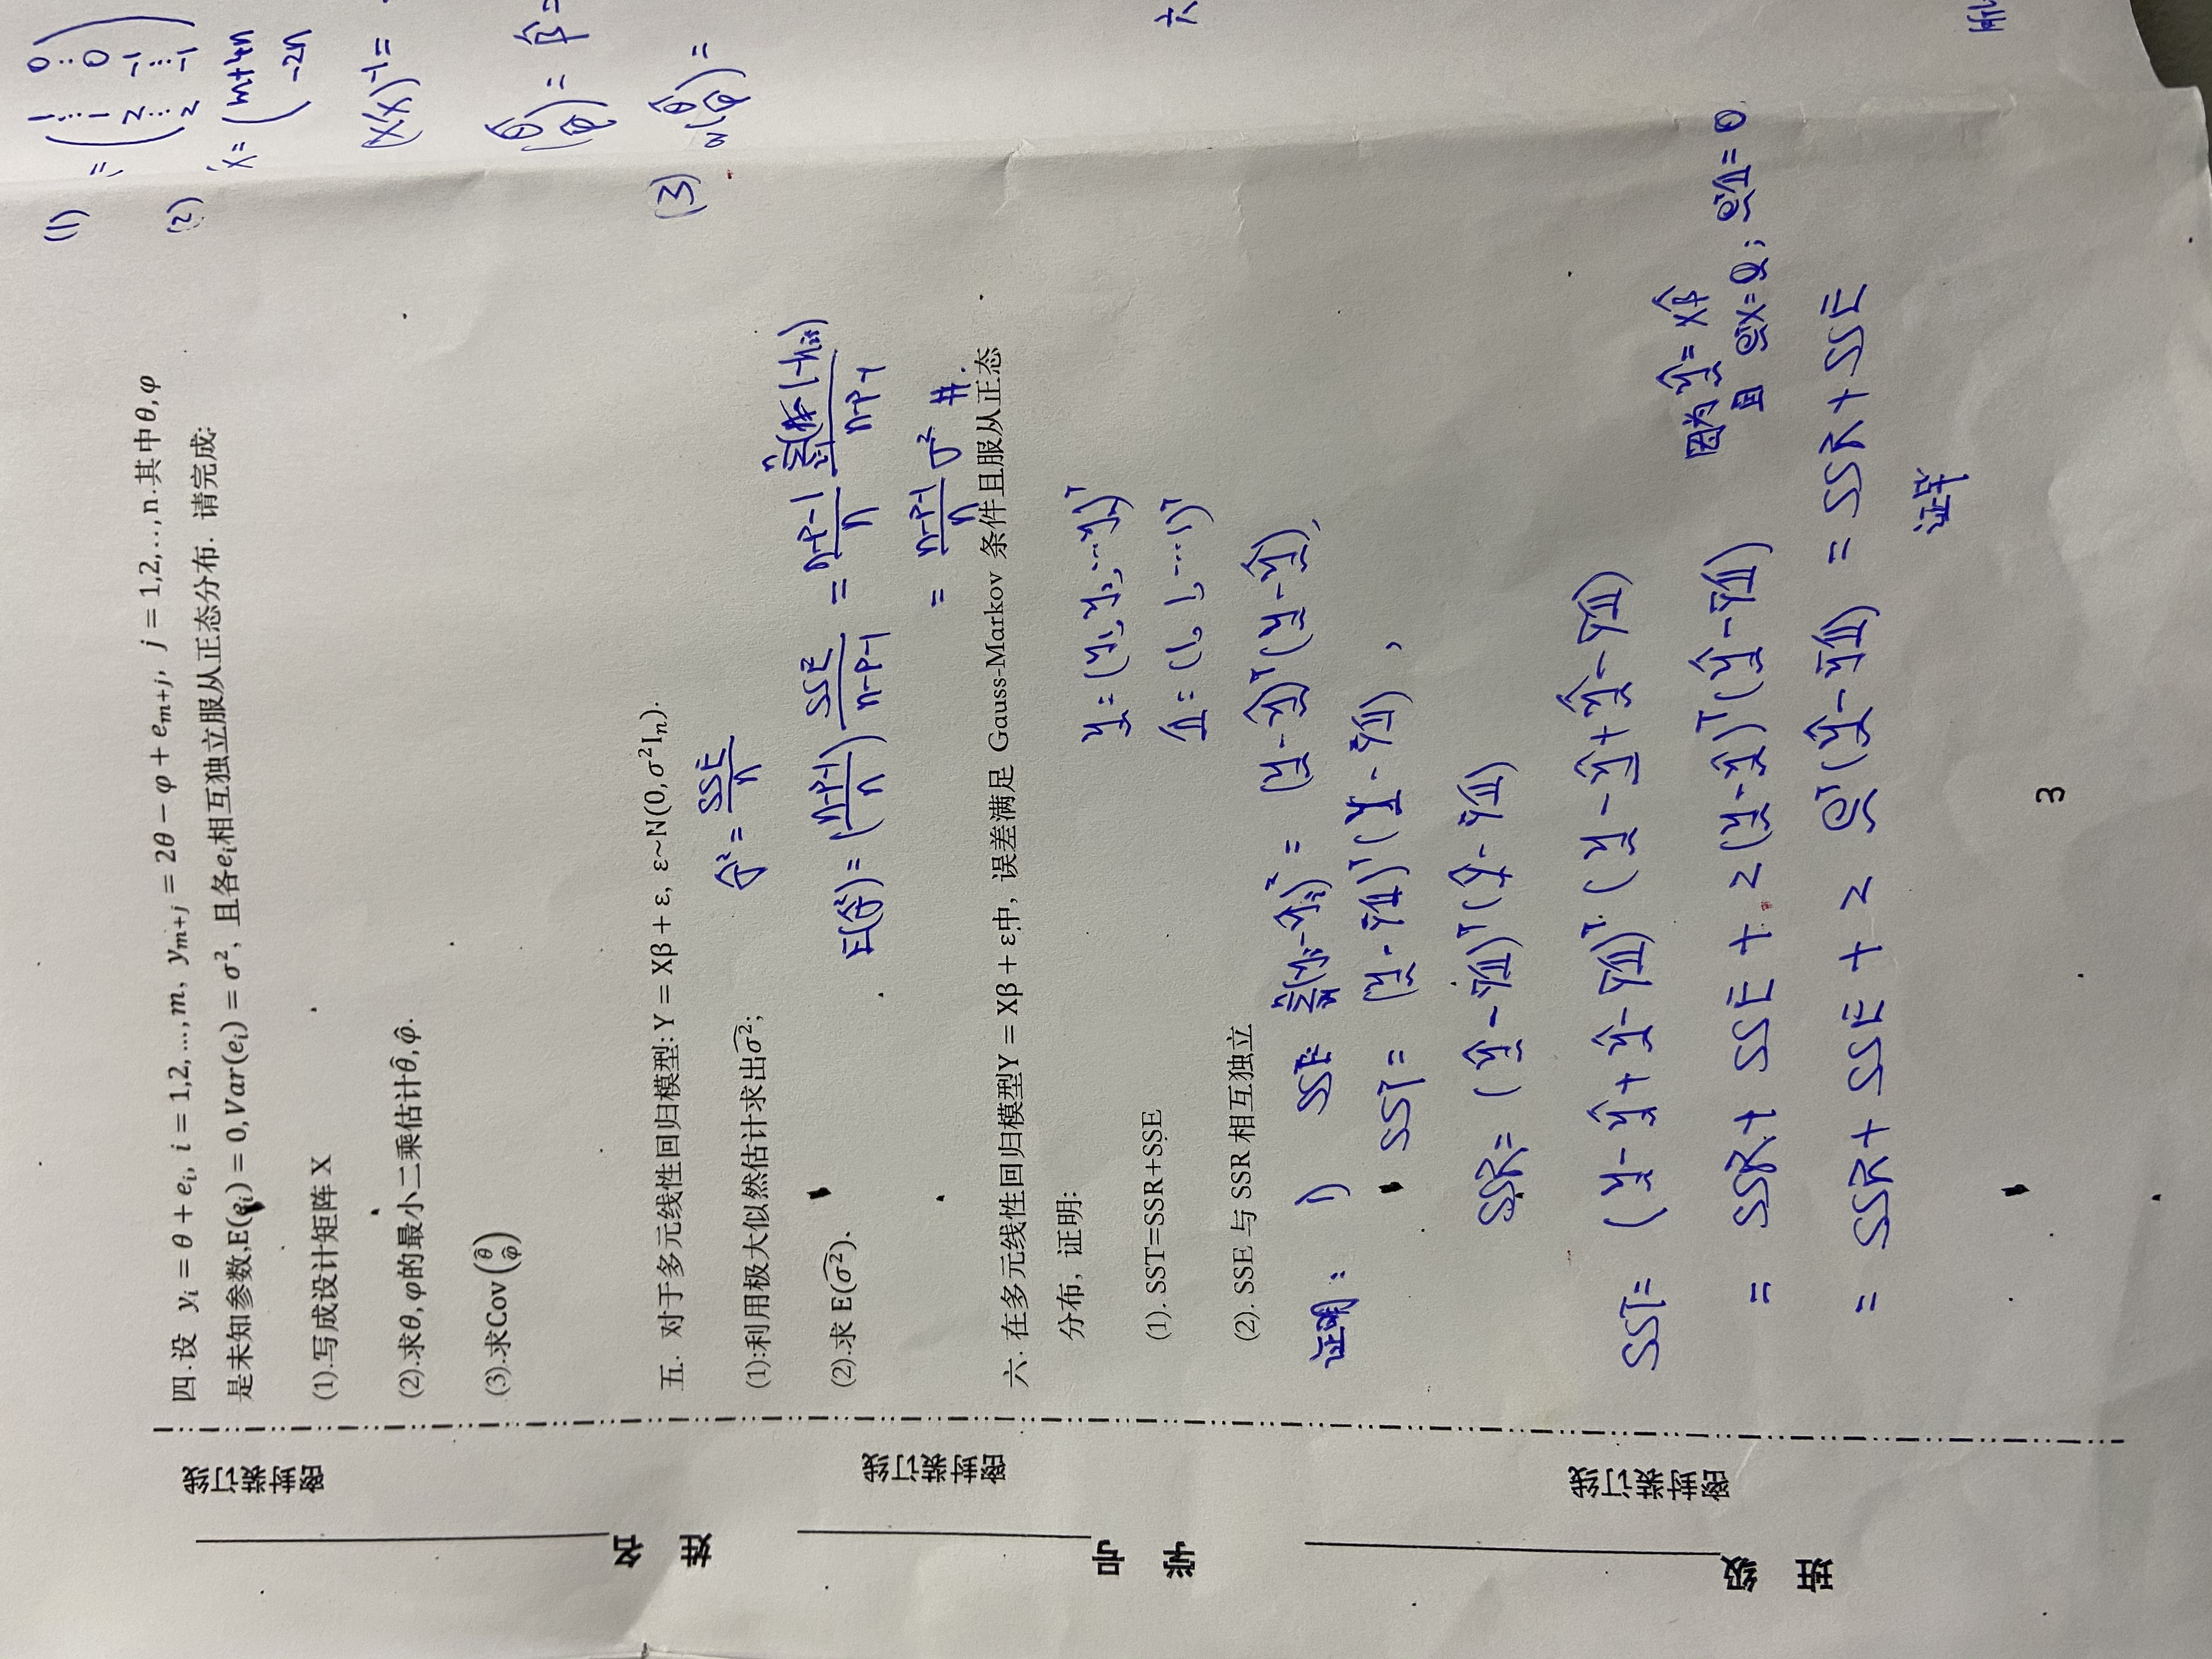 四.设 yᵢ = θ + eᵢ, i = 1,2, …, m, yₘ₊ⱼ = 2θ − φ + eₘ₊ⱼ, j = 1,2, . . , n.其中θ, φ
是未知参数,E(eᵢ) = 0, Var(eᵢ) = σ², 且各eᵢ相互独立服从正态分布. 请完成:
(1).写成设计矩阵 X
(2).求θ, φ的最小二乘估计θ̂, φ̂.
(3).求Cov(θ̂ φ̂)
五. 对于多元线性回归模型: Y = Xβ + ε, ε~N(0, σ²Iₙ).
(1):利用极大似然估计求出σ̂²;
σ̂² = SSE/n
(2).求 E(σ̂²).
E(σ̂²) = (n-p-1/n) SSE/n-p-1 = n-p-1/n
= n-p-1/n σ² #.
六. 在多元线性回归模型Y = Xβ + ε中, 误差满足 Gauss-Markov 条件且服从正态
分布, 证明:
(1). SST=SSR+SSE
(2). SSE 与 SSR 相互独立
y = (y₁, y₂, … yₙ)ᵀ
1 = (1, 1, … 1)ᵀ
证明: 1) SSE = Σ(yᵢ - ŷᵢ)² = (y - ŷ)ᵀ(y - ŷ),
SST = (y - ȳ1)ᵀ(y - ȳ1) ,
SSR = (ŷ - ȳ1)ᵀ(ŷ - ȳ1)
SST = (y - ŷ + ŷ - ȳ1)ᵀ(y - ŷ + ŷ - ȳ1)
= SSR + SSE + 2(y - ŷ)ᵀ(ŷ - ȳ1)
因为 ŷ = Xβ̂
且 eᵀX = 0; eᵀ1 = 0
= SSR + SSE + 2 eᵀ(ŷ - ȳ1) = SSR + SSE
证毕
3
姓 名
学 号
班 级
密封装订线
密封装订线
密封装订线
(1)
= (1 0
… …
1 0
2 -1
… …
2 -1)
(2)
X = (m+4n
-2n
(X'X)⁻¹ =
(θ̂ φ̂) = β̂ =
(3)
(θ̂ φ̂) =
六